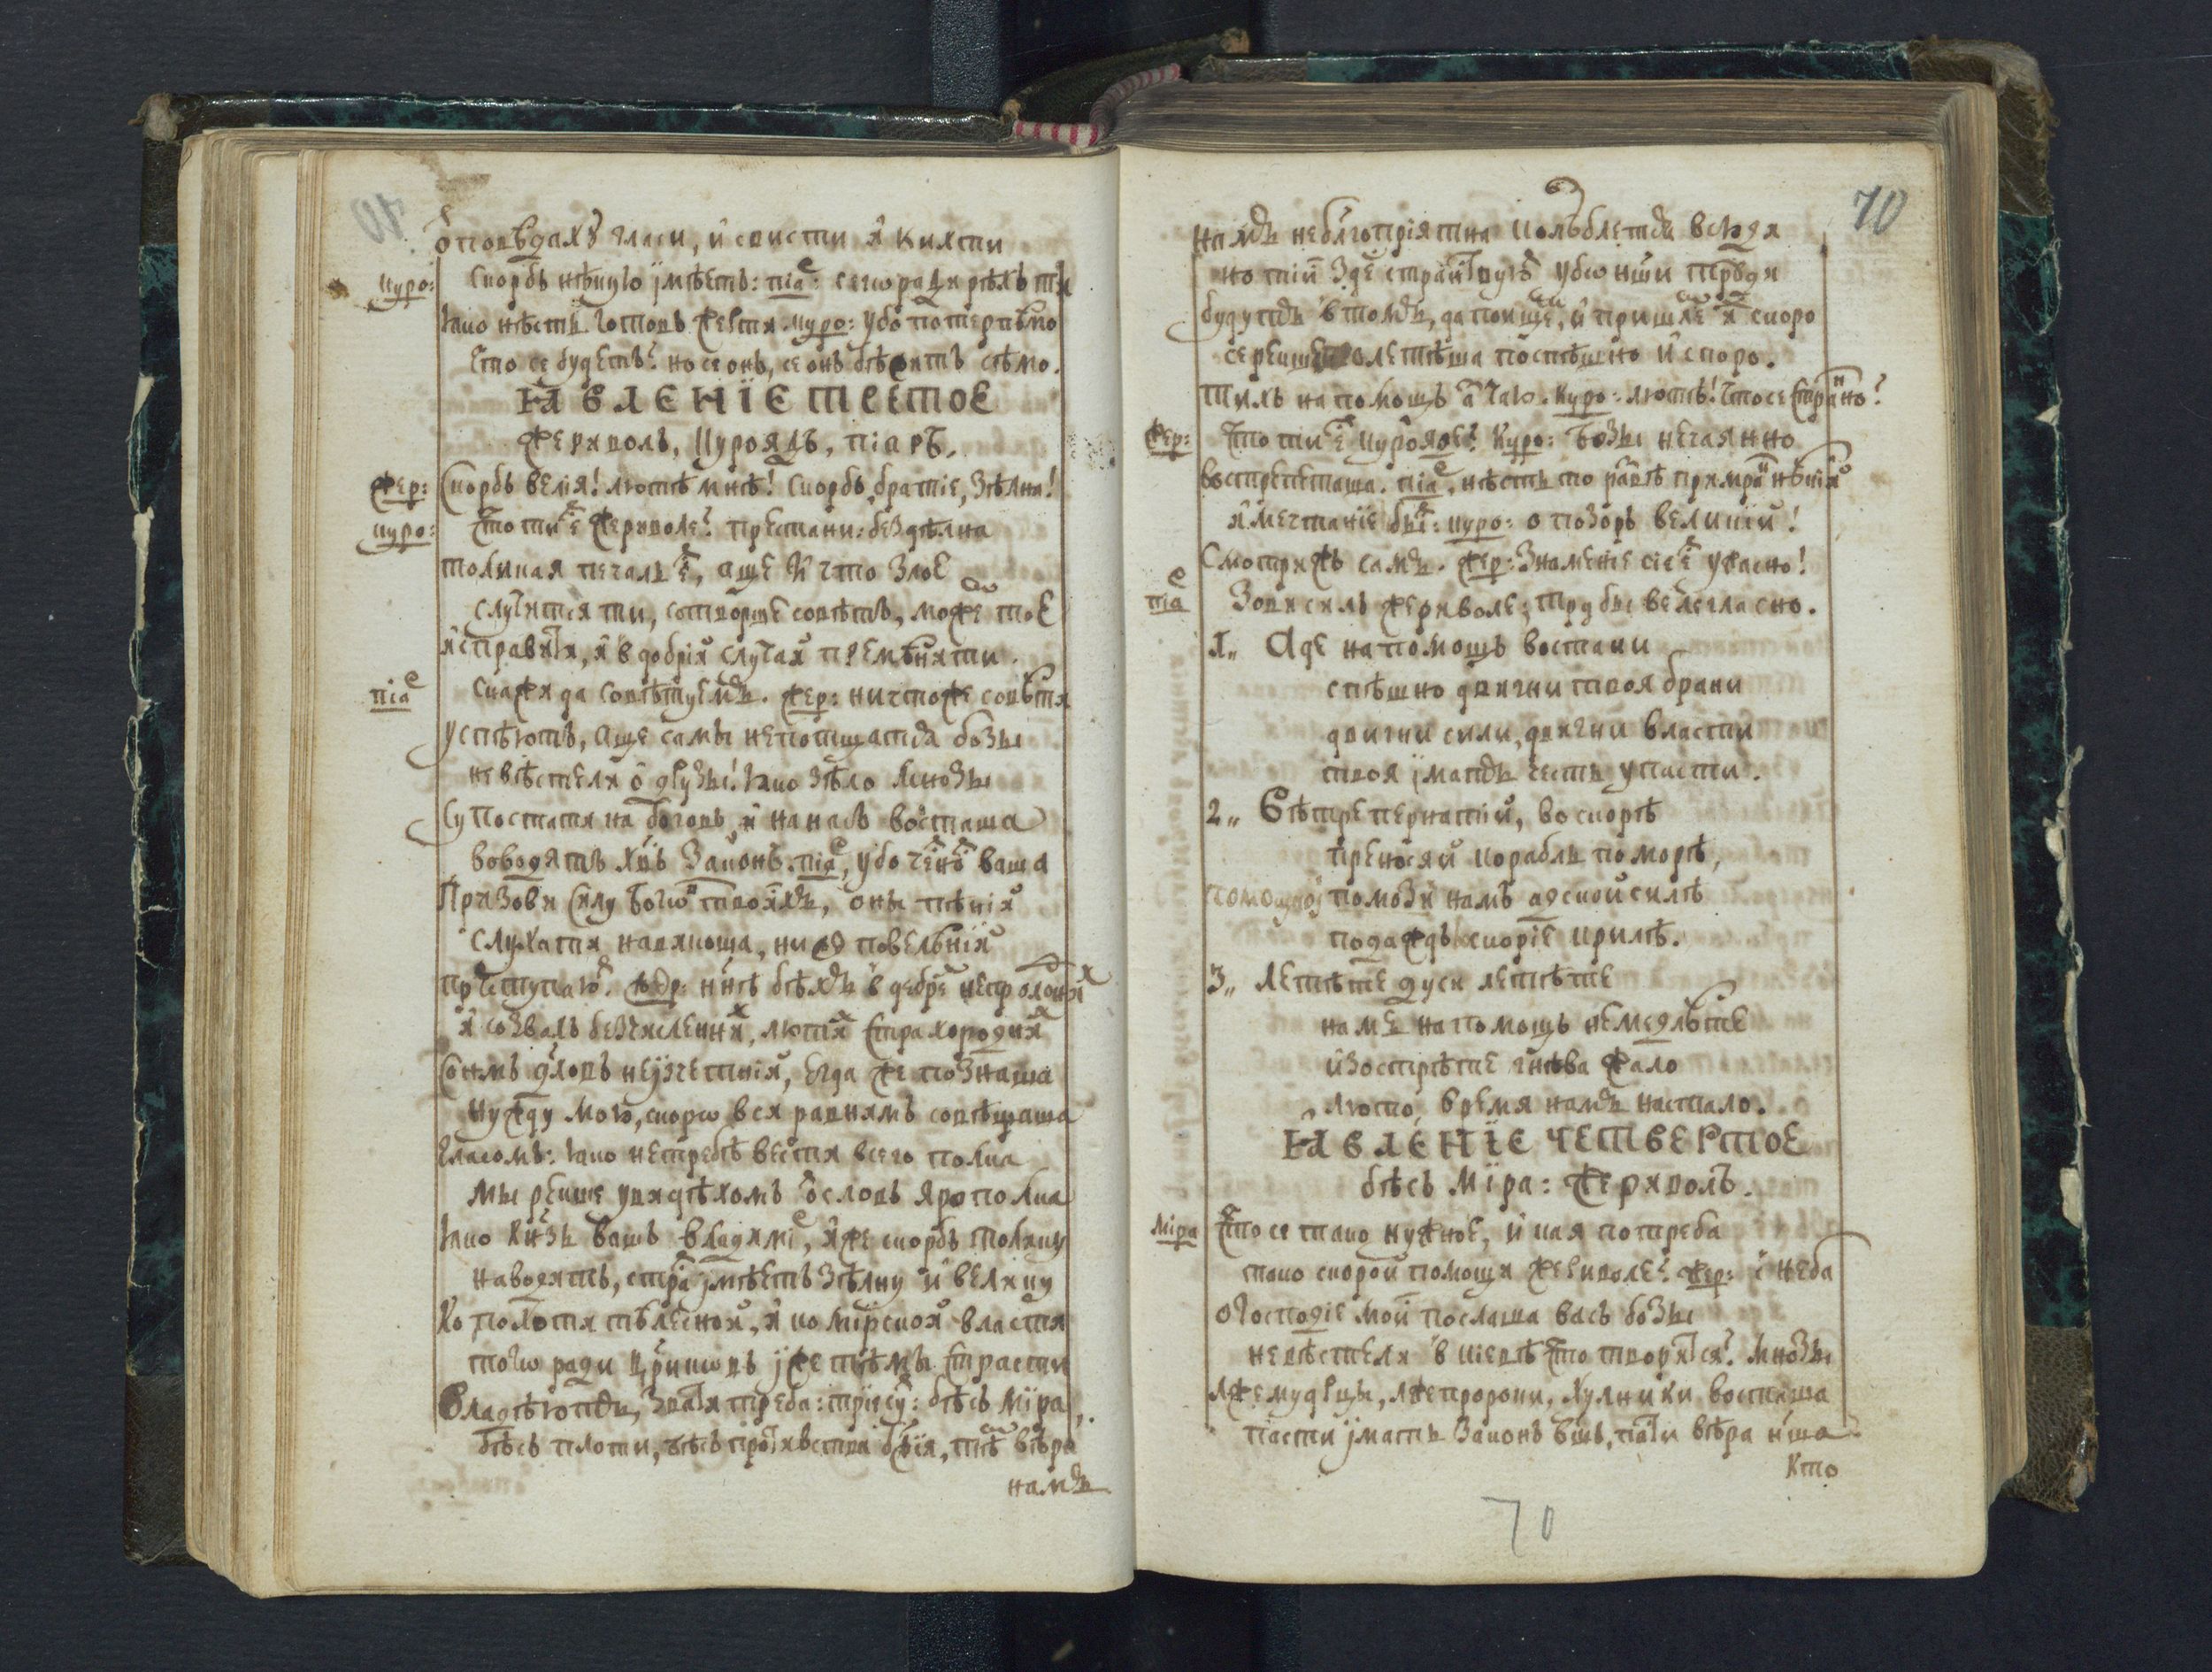 ѿповѣдахȣ гласи, и свисти и кихсти
Куро: Скорбь нѣкую имѣетъ: піа: сего ради рѣхъ ти
Яко нѣсть готовъ жертвы. Куро: Убо потерпѣмо
Что се будетъ? но се онъ, се онъ бѣжитъ сѣмо.
ЯВЛЕНІЕ ТРЕТОЕ
Жериволъ, Куроядъ, піаръ.
Жер: Скорбь велія! лютѣ мнѣ! Скорбь, братіе, зѣлна!
Куро: Что ти е Жериволе? престани: бездѣлна
толикая печаль е, аще и что злое
случится ти, сотворше совѣтъ, може тое
исправити, и в добрій случай премѣнити.
піа Скажи да совѣтуемъ. Жер: ничтоже совѣти
успѣютъ, аще самы непотщатся бозы
невѣстели о друзы! яко зѣло мнозы
Супостати на боговъ и на насъ восташа
воводятъ Хвъ законъ. піа, убо чины ваша
Призови силу богω твоихъ, оны пѣнія
слухати навикоша, ни повелѣнія
престȣпаю. Жер: ннѣ бѣхъ в дебре непроломни
и созвалъ безчисленни, люти страхородни
Сонмъ дховъ неизчетній, егда же познаша
нужду мою, скорω вся равнимъ совѣщаша
Гласомъ: яко нетребѣ вести всего полка
мы рекше увидѣхомъ ѿ словъ Ярополка
Яко Кнзь вашъ владимі, иже скорбь толику
наводитъ, стра имѣетъ зѣлну и велику
Ко похоти тѣлесной, и ко мірской власти
тогω ради црикωвъ иже тѣмы страсти
Владѣютъ, звати треба: тріесу: бѣсъ міра,
бѣсъ плоти, бѣсъ противства бжія, тѣ вѣра
намъ
70
намъ неблгопріятна колѣблется всюди
но тіи зде странствую убω нши труди
будутъ в томъ, да поище, и пришле и скоро
се рекше летѣша поспѣшно и споро.
Тихъ на помощъ а чаю. Куро: лютѣ! Что се странно?
Жер: Что ти е Курояде? Куро: Бозы нечаянно
вострепеташа. піа, нѣсть то
и мечтаніе бы: куро: о позоръ великій!
Смотрихъ самъ. Жер: знаменіе сіе е ужасно!
піа Зови силъ Жериволе; трубы велегласно.
1,, Аде на помощъ востани
спѣшно двигни твоя брани
двигни сили, двигни власти
твоя имать честь упасти.
2,, Вѣтре пернатій, во скорѣ
преносяй кораблъ по морѣ,
помози намъ адской силѣ
подаждь скоріе крилѣ.
3,, Летѣте дуси летѣте
намъ на помощъ немедлѣте
изострѣте гнѣва жало
люто время намъ настало.
ЯВЛЕНІЕ ЧЕТВЕРТОЕ
бѣсъ Міра: Жериволъ.
Міра Что се тако нужное, и кая потреба
тако скорой помощи Жериволе? Жер: с неба
о Господіе мои послаша васъ бозы
невѣстели в Кіевѣ что творится? мнозы
Лжемудрцы, лжепророки, хулники восташа
пасти имать законъ вшъ, пасти вѣра нша
Кто
70